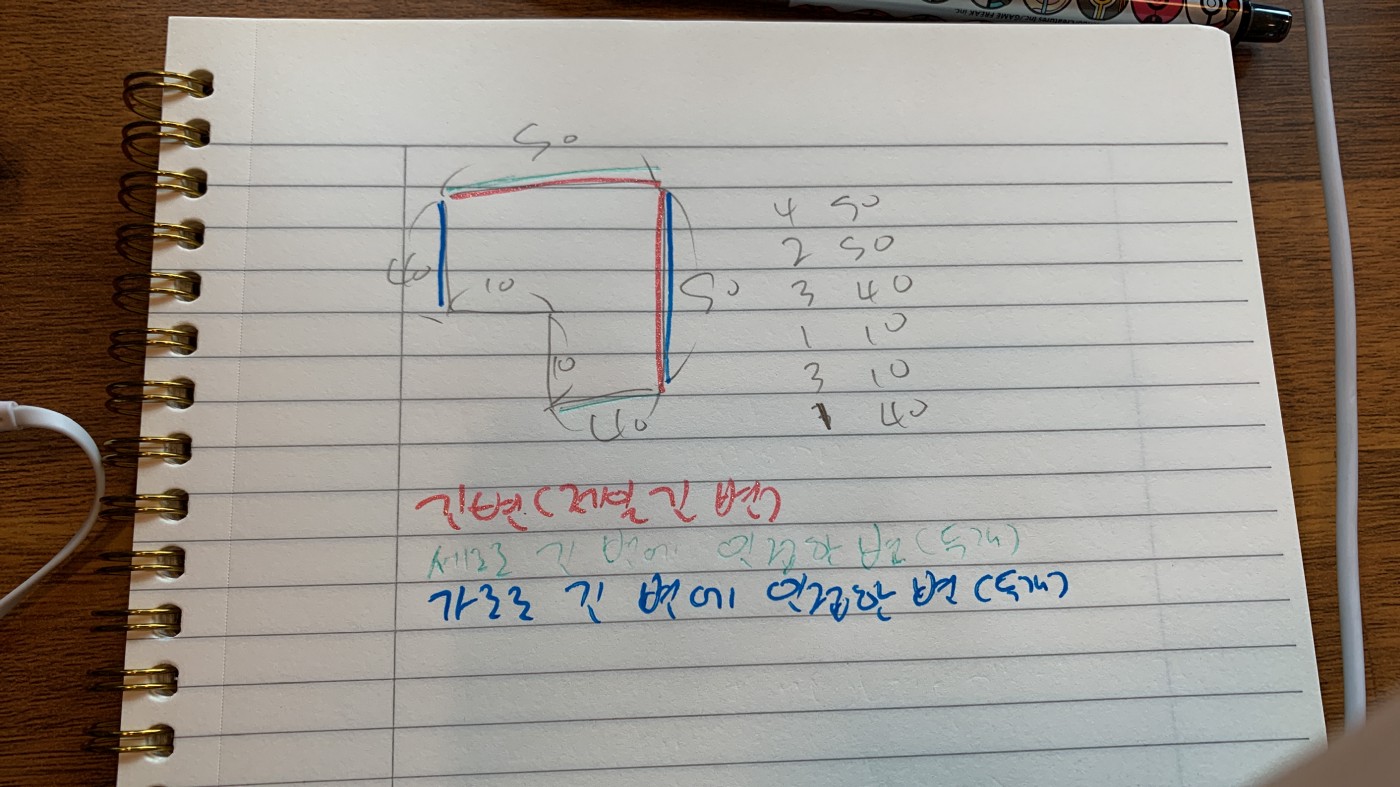 50
40
10
50
10
40
4 50
2 50
3 40
1 10
3 10
1 40
긴변(제일 긴 변)
세로로 긴 변에 인접한 변(두개)
가로로 긴 변에 인접한 변(두개)